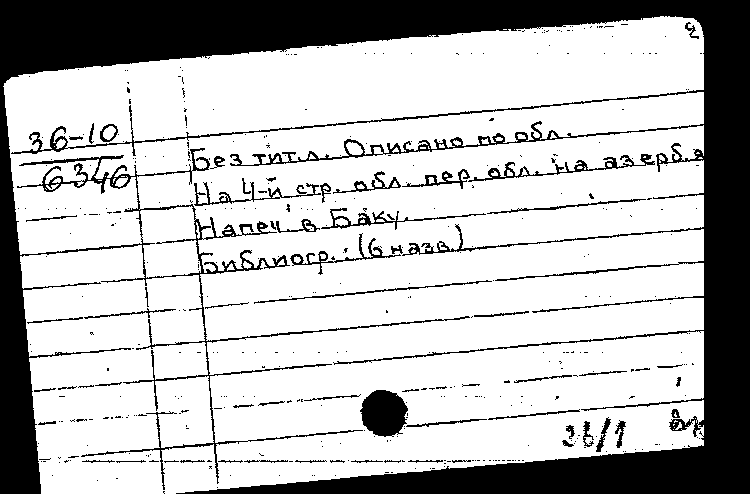 36-10
6346
Без тит. л. Описано по обл.
На 4-й стр. обл. пер. обл. на азерб. я
Напеч. в Баку.
Библиогр.: (6 назв.)
26/1